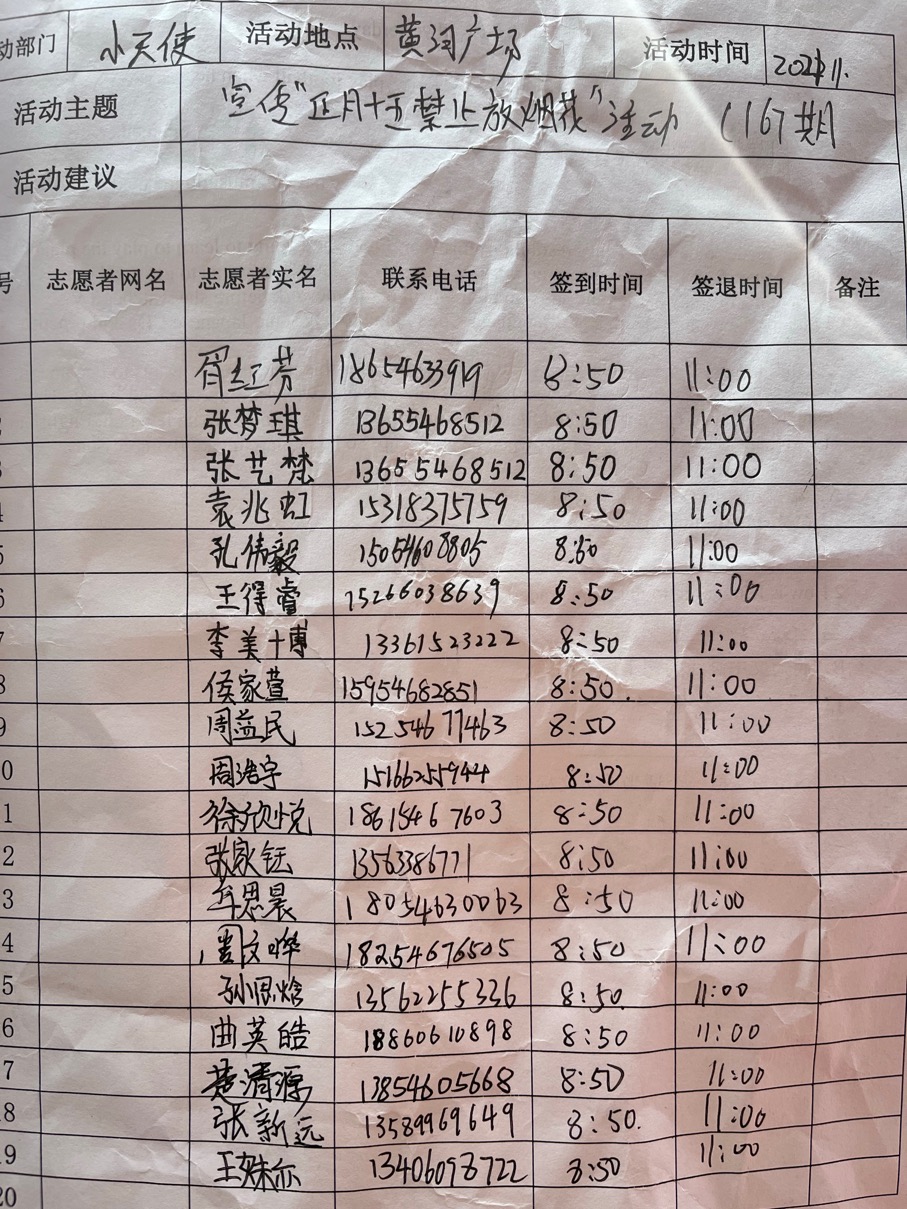 动部门 小天使 活动地点 黄河广场 活动时间 2021.11.
活动主题 宣传"正月十五禁止放烟花"活动 (167期
活动建议
号 志愿者网名 志愿者实名 联系电话 签到时间 签退时间 备注
胥红芳 18654633919 8:50 11:00
2 张梦琪 13655468512 8:50 11:00
3 张艺梵 13655468512 8:50 11:00
4 袁兆虹 15318375759 8:50 11:00
5 孔伟毅 15054608805 8:50 11:00
6 王得睿 15266038639 8:50 11:00
7 李美博 13361523222 8:50 11:00
8 侯家萱 15954682851 8:50. 11:00
9 周益民 15254677463 8:50 11:00
0 周浩宇 15166255944 8:50 11:00
1 徐欣悦 18615467603 8:50 11:00
2 张家钰 13563386771 8:50 11:00
3 思晨 18054630063 8:50 11:00
4 周文晔 18254676505 8:50 11:00
5 孙思焓 13562255336 8:50 11:00
6 曲英皓 18860610898 8:50 11:00
7 楚清源 13854605668 8:50 11:00
8 张新远 13589969649 8:50. 11:00
9 王姝尔 13406098722 8:50 11:00
20